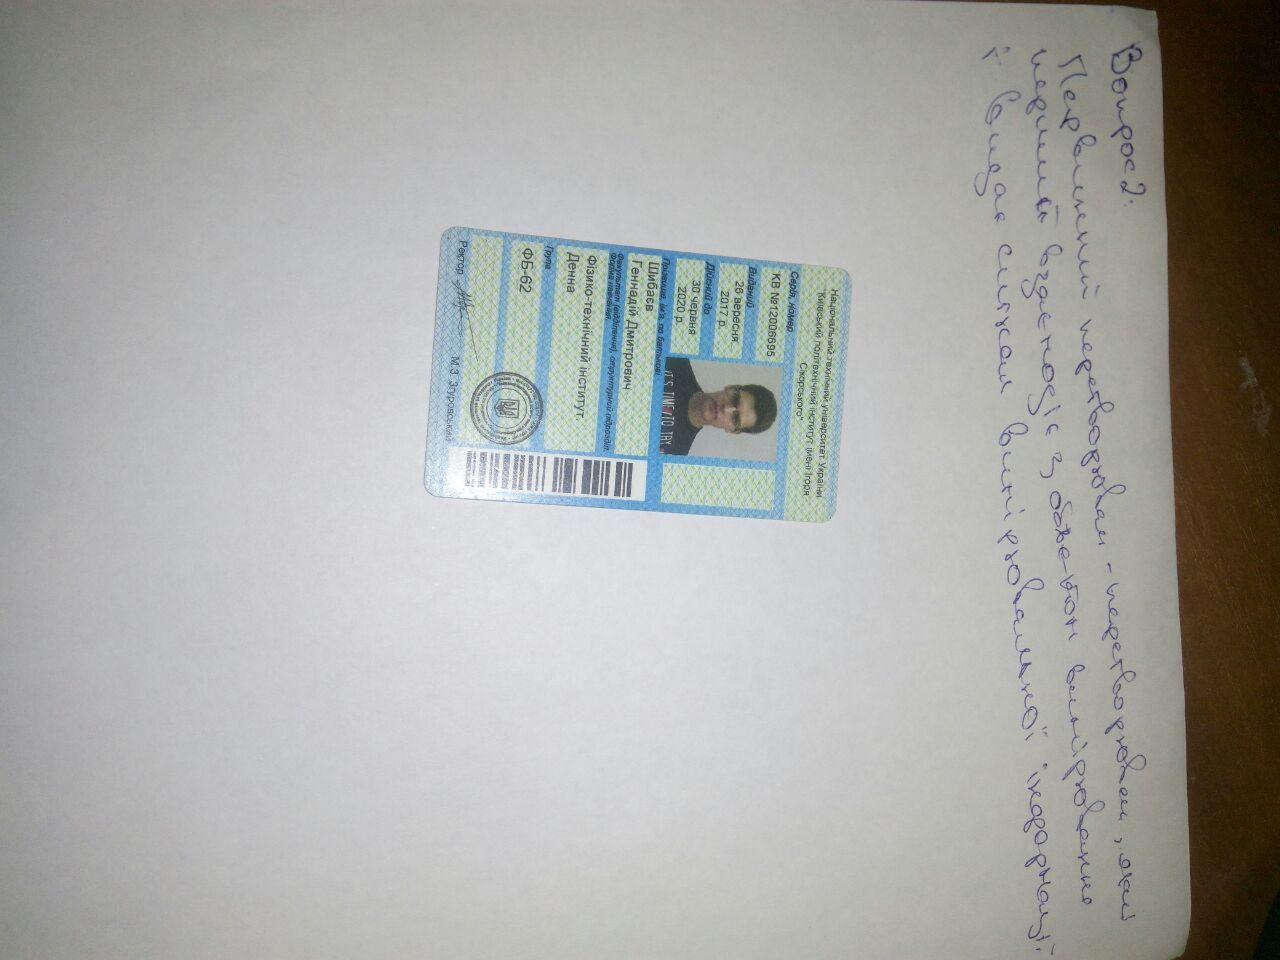 Вопрос 2:
Первинний перетворювач - перетворювач, який
перший взаємодіє з об'єктом вимірювання
і видає сигнал вимірювальної інформації
Національний технічний університет України
"Київський політехнічний інститут імені Ігоря
Сікорського"
Серія, номер
КВ №12006695
Виданий
26 вересня
2017 р.
Дійсний до
30 червня
2020 р.
Прізвище, ім'я, по батькові
Шибаєв
Геннадій Дмитрович
Факультет (відділення), структурний підрозділ.
Форма навчання
Фізико-технічний інститут.
Денна
Група
ФБ-62
Ректор М.З. Згуровський
IT'S TIME TO